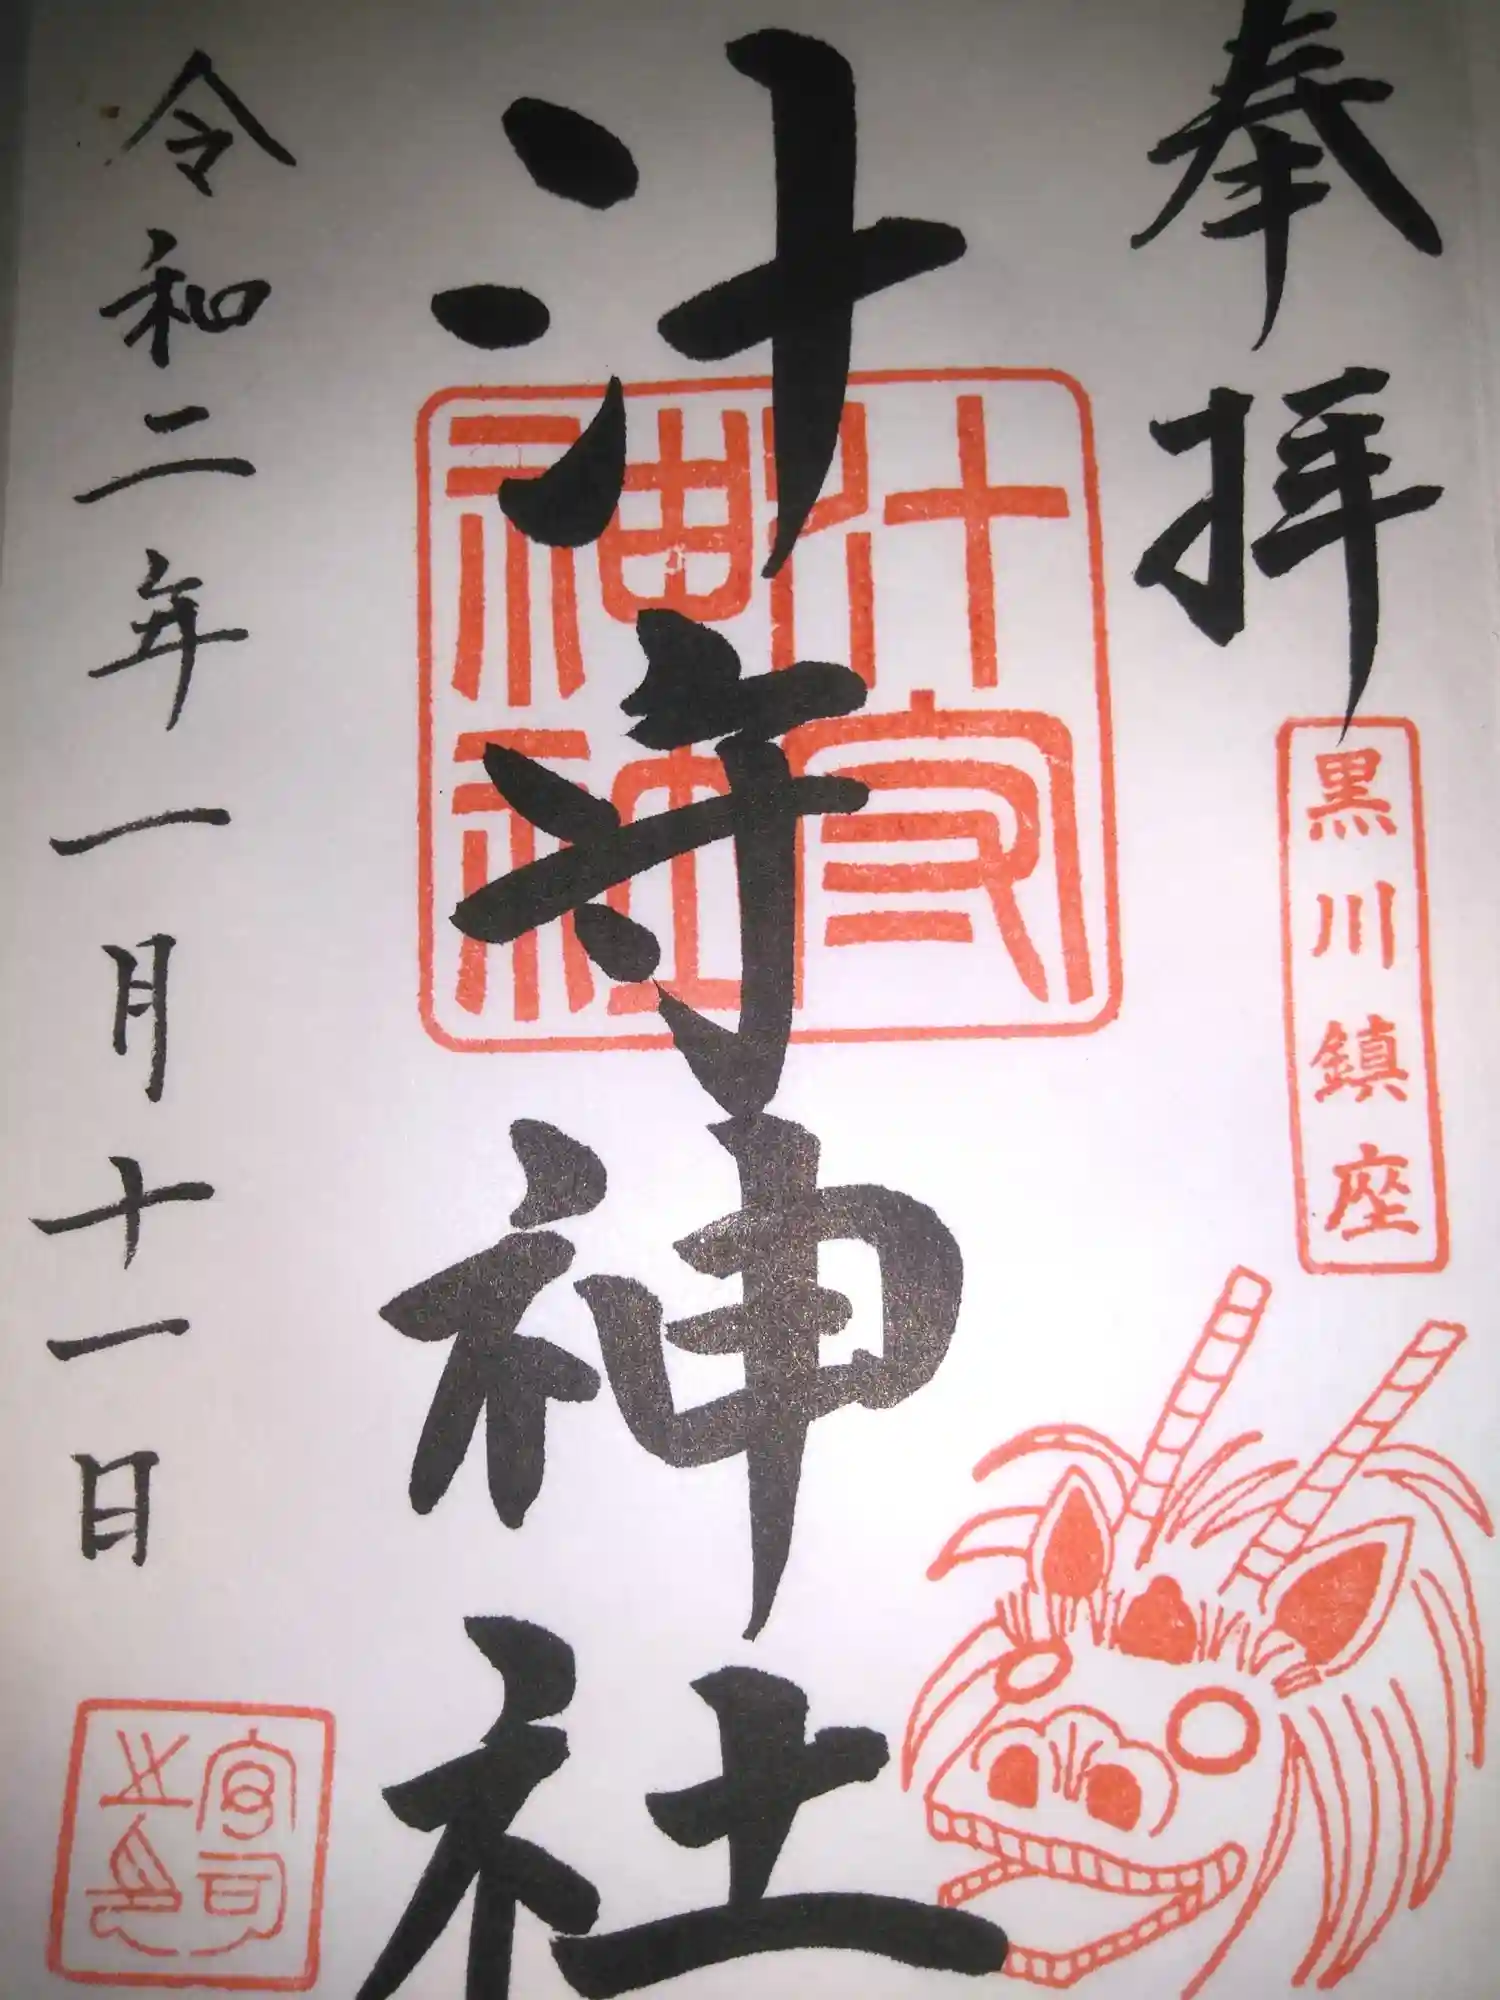 奉拝
黒川鎮座
汁守神社
汁守
神社
令和二年一月十一日
宮司
之印